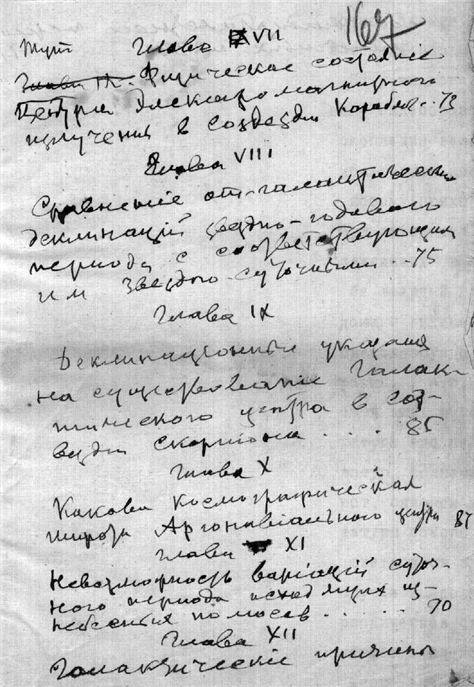 167
Глава VII
Физическое состояніе
центра электромагнитного
излученія в созвездіи Корабля .. 73
Глава VIII
Сравненіе
деклинацій звездно-годового
периода с соответствующими
им звездно-суточными .. 75
Глава IX
Деклинационныя указанія
на существованіе Галак-
тического центра в соз-
вездіи Скорпиона .... 85
Глава X
Какова космографическая
широта Аргонавіального центра 87
Глава XI
Невозможность варіацій суточ-
ного периода исходящих из
небесных полюсов ..... 70
Глава XII
Галактическіе причины